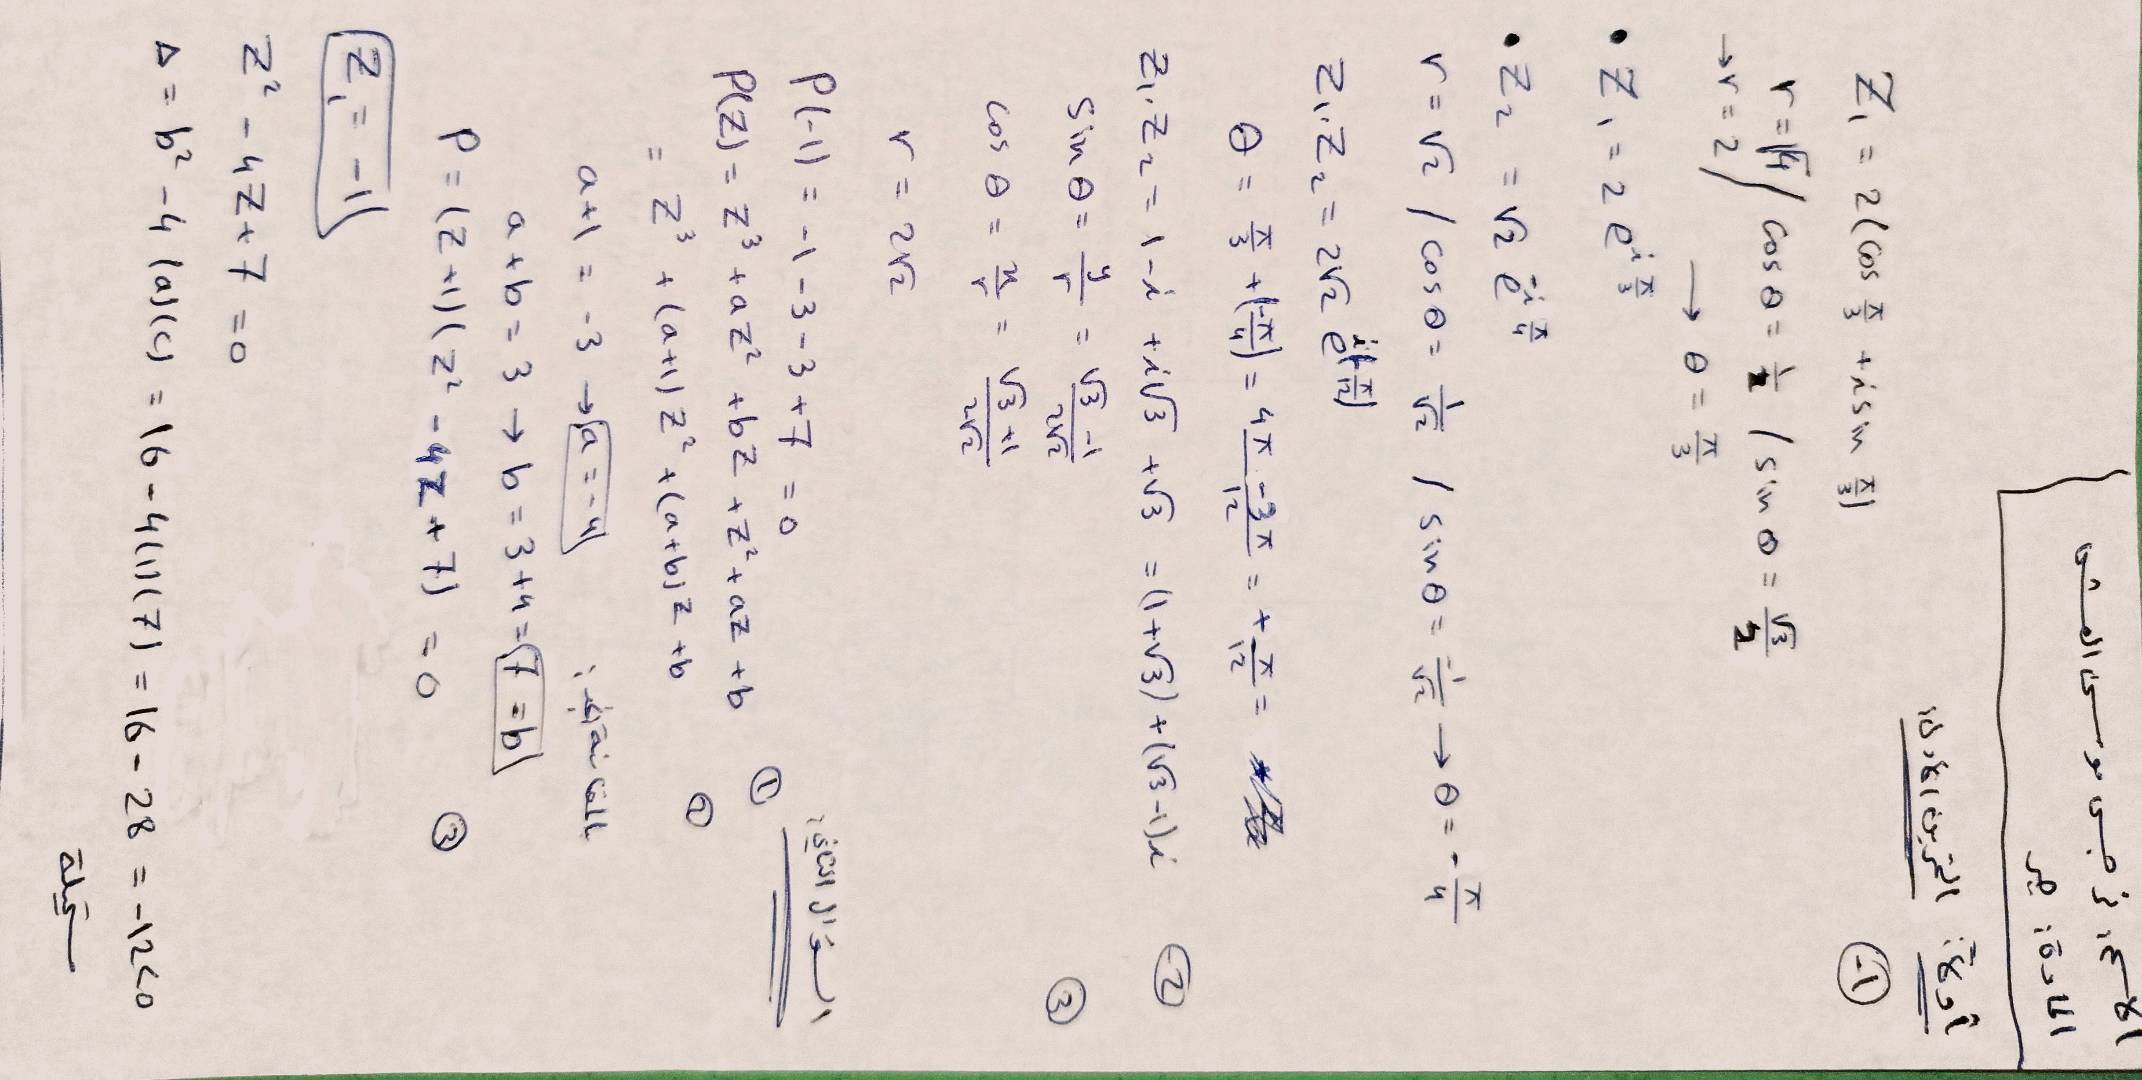 الاسم: نرجس موسى العشي
المادة: جبر
أولاً: التمرين الأول:
1- Z₁ = 2(cos π/3 + i sin π/3)
r = √4 / cos θ = 1/2 / sin θ = √3/2
→ r = 2 → θ = π/3
• Z₁ = 2 e^{i π/3}
• Z₂ = √2 e^{-i π/4}
r = √2 / cos θ = 1/√2 / sin θ = -1/√2 → θ = -π/4
Z₁.Z₂ = 2√2 e^{i(π/12)}
θ = π/3 + (-π/4) = 4π - 3π/12 = + π/12 =
2- Z₁.Z₂ = 1 - i + i√3 + √3 = (1+√3) + (√3-1)i
3 sin θ = y/r = √3 -1/2√2
cos θ = x/r = √3 +1/2√2
r = 2√2
السؤال الثاني:
1 P(-1) = -1 -3 -3 +7 = 0
P(Z) = Z³ + aZ² + bZ + Z² + aZ + b
2 = Z³ + (a+1) Z² + (a+b) Z + b
بالمقارنة نجد: a+1 = -3 → a = -4
a + b = 3 → b = 3 + 4 = 7 = b
3 P = (Z+1)(Z² - 4Z + 7) = 0
Z₁ = -1
Z² - 4Z + 7 = 0
Δ = b² - 4(a)(c) = 16 - 4(1)(7) = 16 - 28 = -12 < 0
مستحيلة